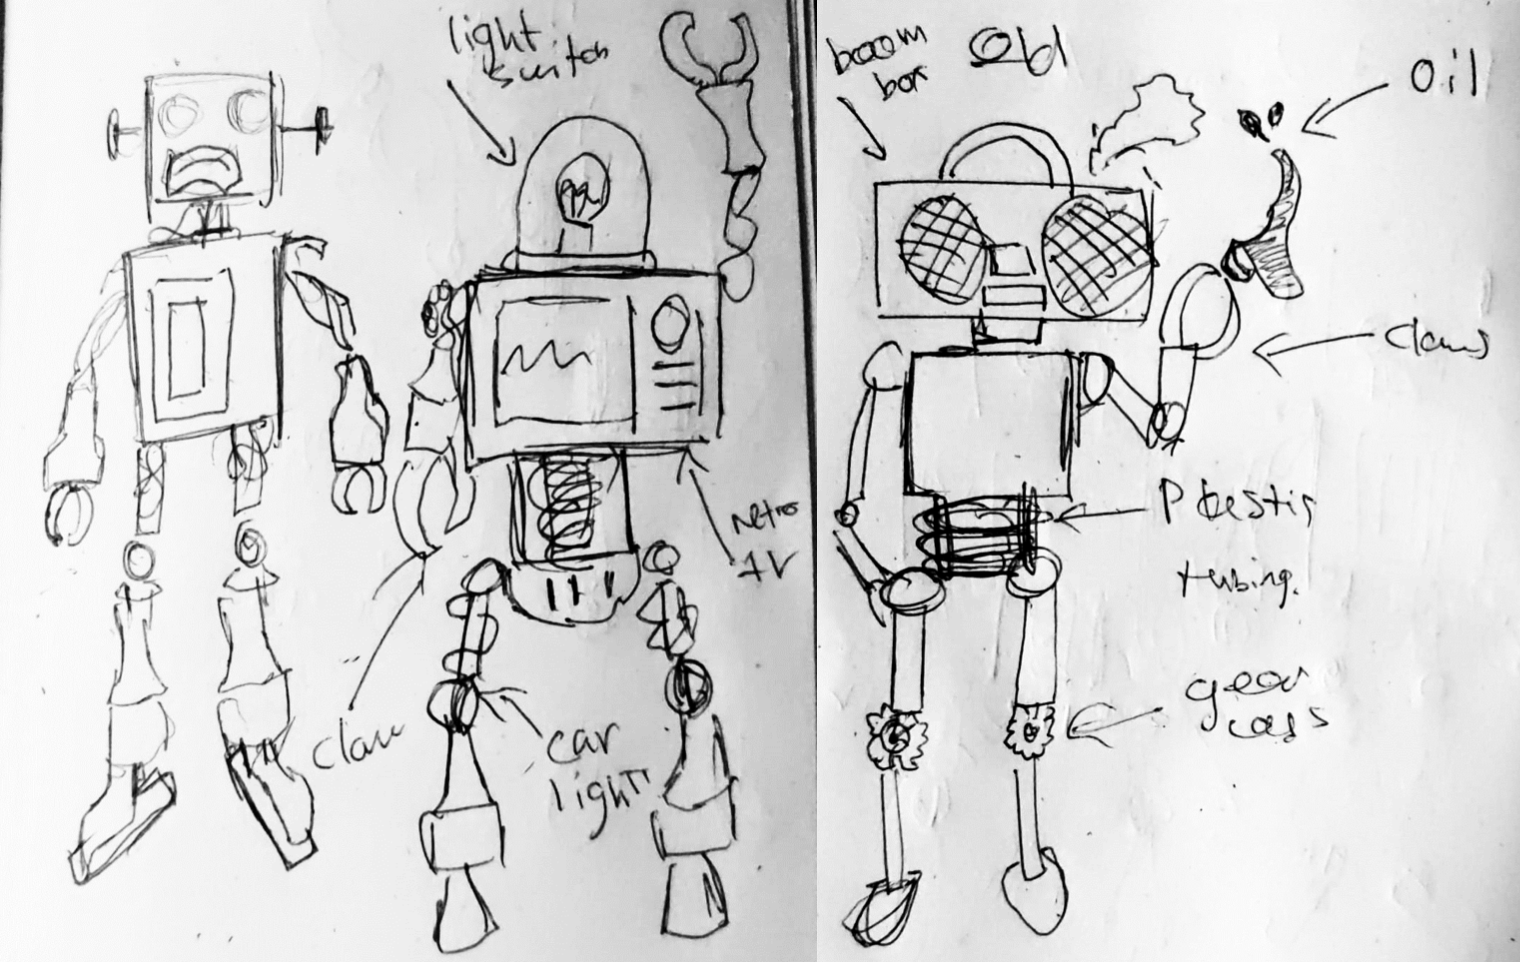 light
switch
claw
car
light
retro
TV
boom
box
Old
oil
claws
Plastic
tubing.
gear
cogs